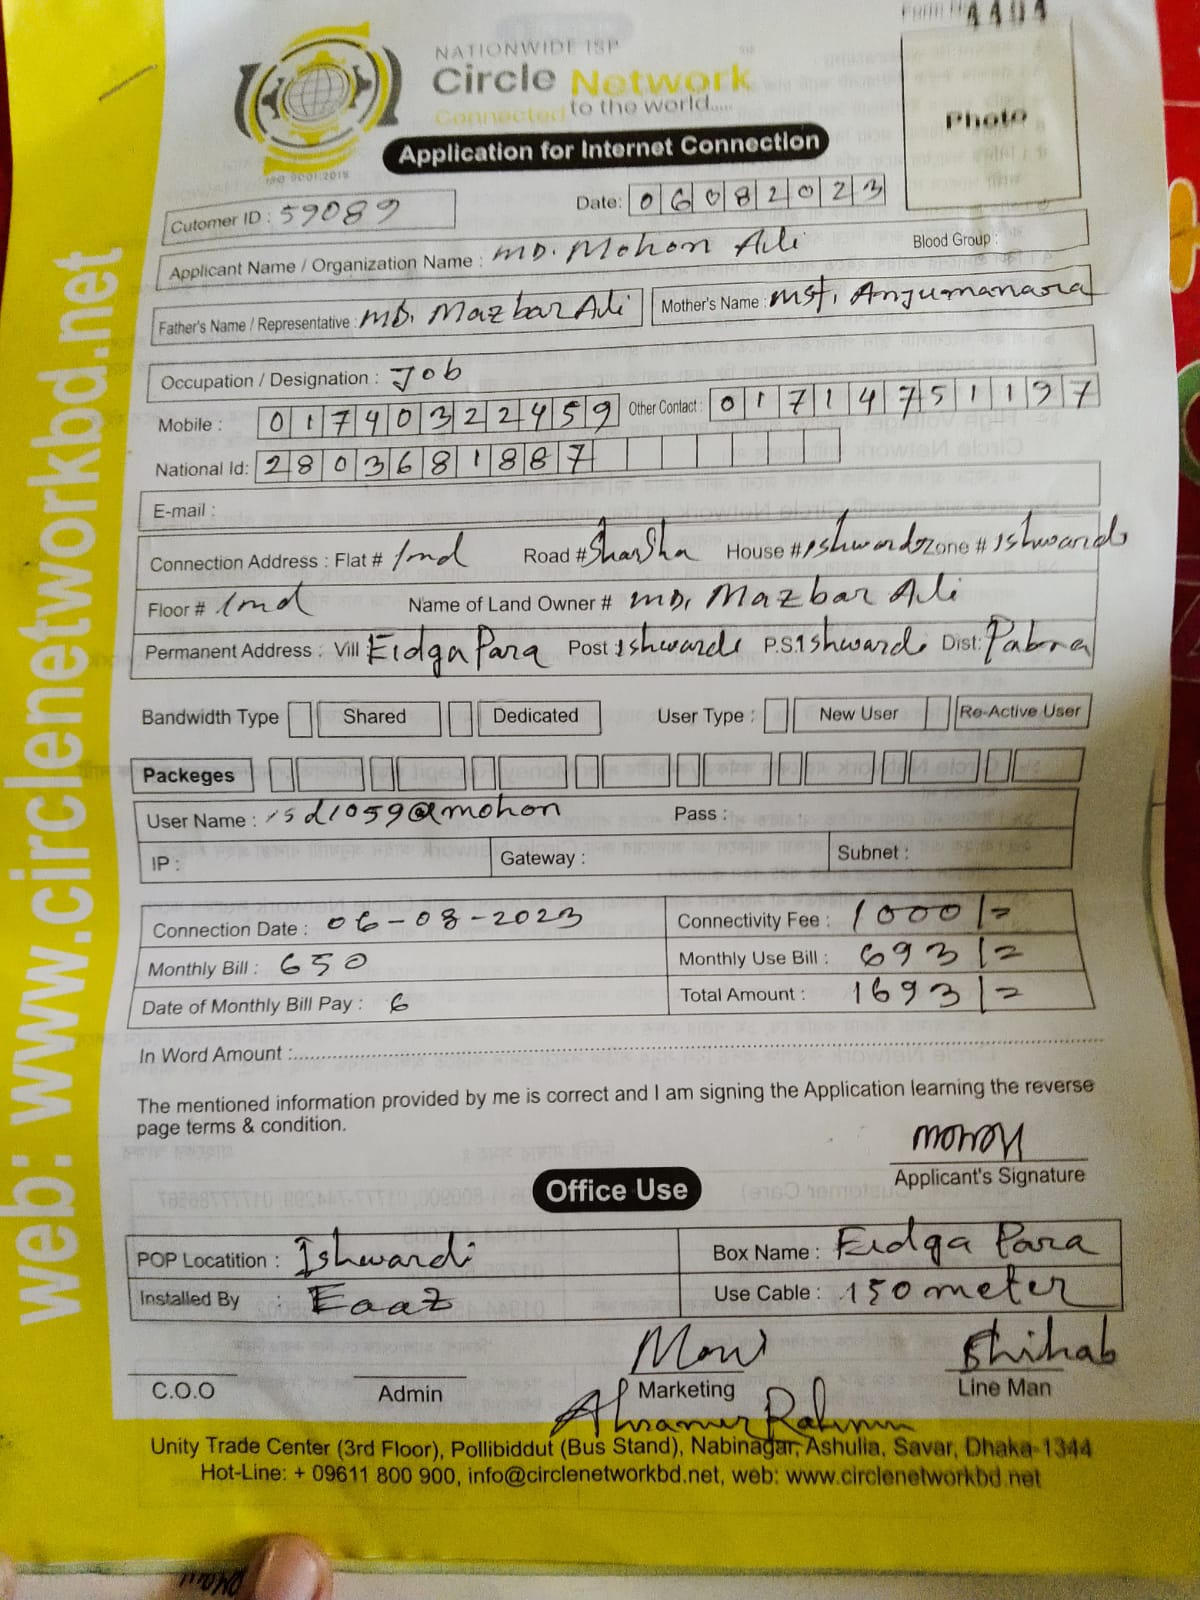 Form No 4404
NATIONWIDE ISP
Circle Network
Connected to the world.....
ISO 9001:2015
Photo
Application for Internet Connection
Cutomer ID : 59089
Date: 06082023
Applicant Name / Organization Name : MD. Mohon Ali
Blood Group :
Father's Name / Representative : MD. Mazbar Ali
Mother's Name : Mst. Anjumanara
Occupation / Designation : Job
Mobile : 01740322459
Other Contact : 01714751197
National Id: 2803681887
E-mail :
Connection Address : Flat # Ind Road # ShanSha House # Ishwardi Zone # Ishwardi
Floor # Ind Name of Land Owner # MD. Mazbar Ali
Permanent Address : Vill Eidga Para Post Ishwardi P.S. Ishwardi Dist: Pabna
Bandwidth Type Shared Dedicated User Type : New User Re-Active User
Packeges
User Name : isd1059@mohon Pass :
IP : Gateway : Subnet :
Connection Date : 06-08-2023 Connectivity Fee : 1000/=
Monthly Bill : 650 Monthly Use Bill : 693/=
Date of Monthly Bill Pay : 6 Total Amount : 1693/=
In Word Amount :
The mentioned information provided by me is correct and I am signing the Application learning the reverse
page terms & condition.
MOHON
Applicant's Signature
Office Use
POP Locatition : Ishwardi Box Name : Eidga Para
Installed By : Eaaz Use Cable : 150 meter
Shihab
C.O.O Admin Marketing Line Man
Unity Trade Center (3rd Floor), Pollibiddut (Bus Stand), Nabinagar, Ashulia, Savar, Dhaka-1344
Hot-Line: + 09611 800 900, info@circlenetworkbd.net, web: www.circlenetworkbd.net
web: www.circlenetworkbd.net